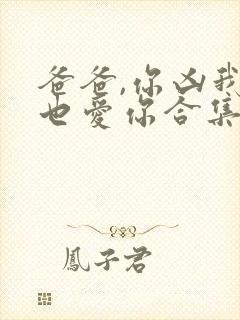 爸爸,你凶我
也爱你合集
鳳子君